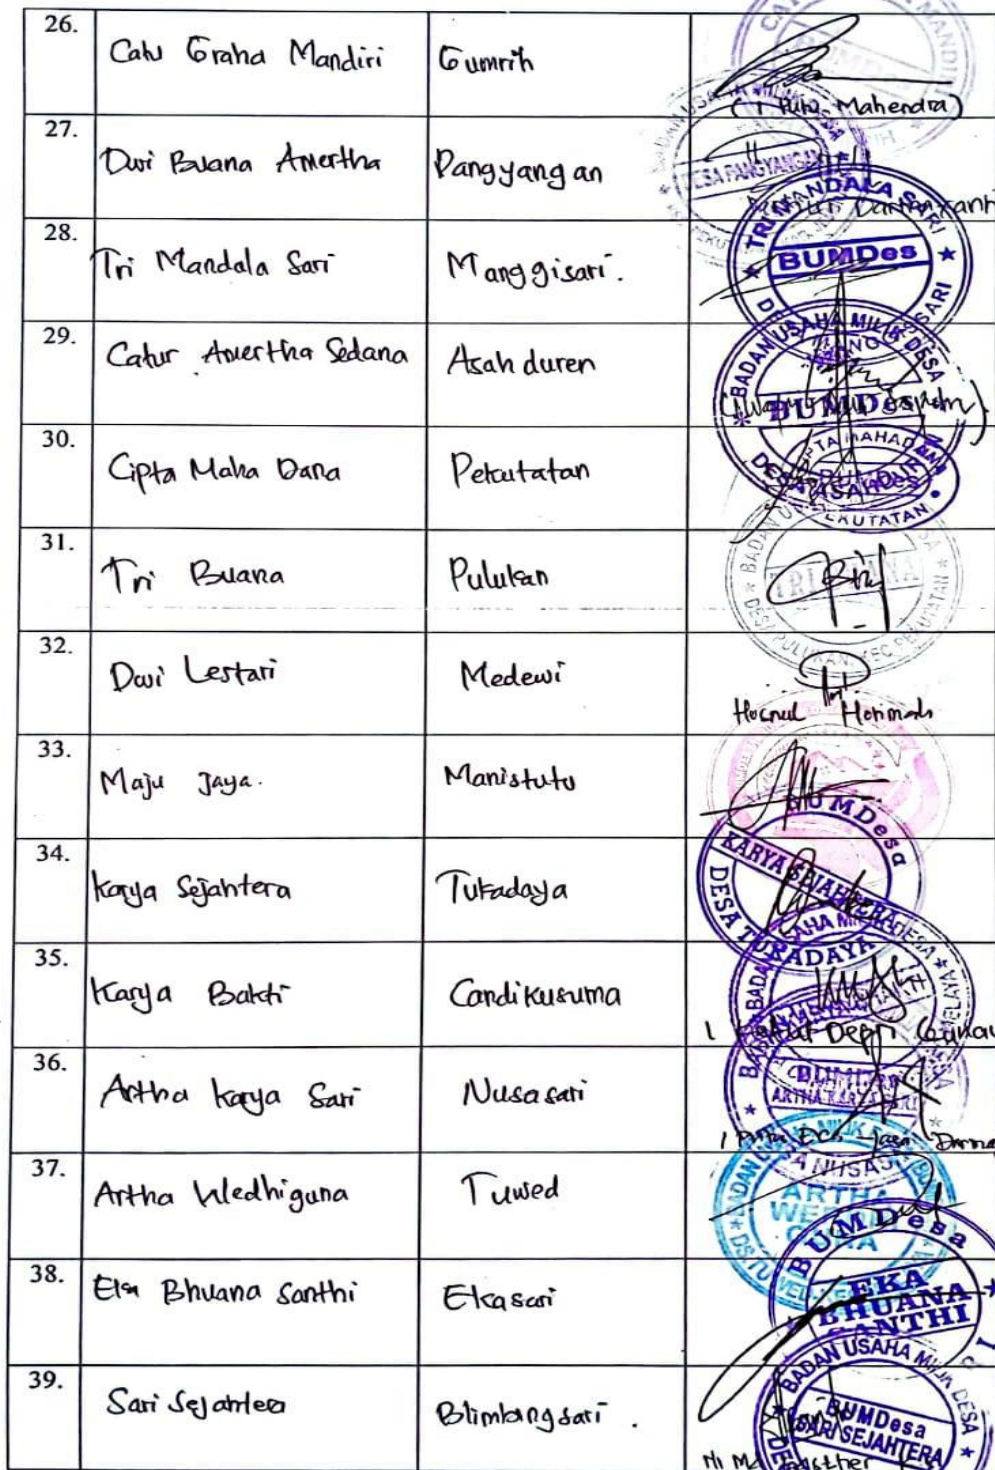 26. Catu Graha Mandiri Gumrih
(I Putu Mahendra)
27. Dwi Buana Amertha Pangyangan
DESA PANGYANGAN
28. Tri Mandala Sari Manggisari.
TRI MANDALA SARI
BUMDes
29. Catur Amertha Sedana Asahduren
BADAN USAHA MILIK DESA
BUMDes
30. Cipta Maha Dana Pekutatan
PEKUTATAN
31. Tri Buana Pulukan
TRI BUANA
DESA PULUKAN, KEC. PEKUTATAN
32. Dwi Lestari Medewi
33. Maju Jaya. Manistutu
34. Karya Sejahtera Tukadaya
BUMDesa
KARYA SEJAHTERA
DESA TUKADAYA
35. Karya Bakti Candikusuma
36. Artha Karya Sari Nusasari
ARTHA KARYA SARI
37. Artha Wedhiguna Tuwed
ARTHA
38. Eka Bhuana Santhi Ekasari
BUMDesa
EKA
BHUANA
SANTHI
39. Sari Sejahtera Blimbingsari.
BADAN USAHA MILIK DESA
BUMDesa
SARI SEJAHTERA